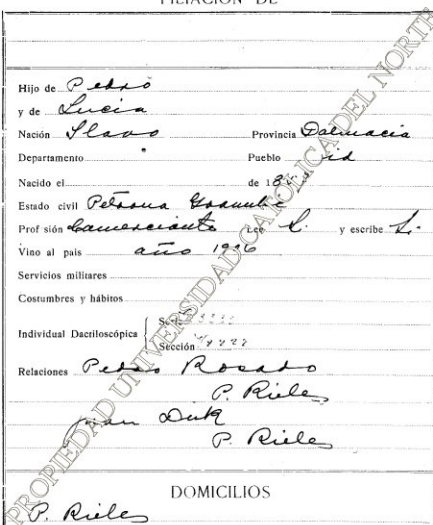 FILIACIÓN DE
Hijo de Pedro
y de Lucia
Nación Slavo Provincia Dalmacia
Departamento Pueblo id
Nacido el de 18
Estado civil Petrona
Profesión Comerciante Lee S. y escribe S.
Vino al país año
Servicios militares
Costumbres y hábitos
Individual Dactiloscópica
Serie
Sección
Relaciones Pedro Rosado
P. Rieles
Juan Duk
P. Rieles
DOMICILIOS
P. Rieles
PROPIEDAD UNIVERSIDAD CATOLICA DEL NORTE